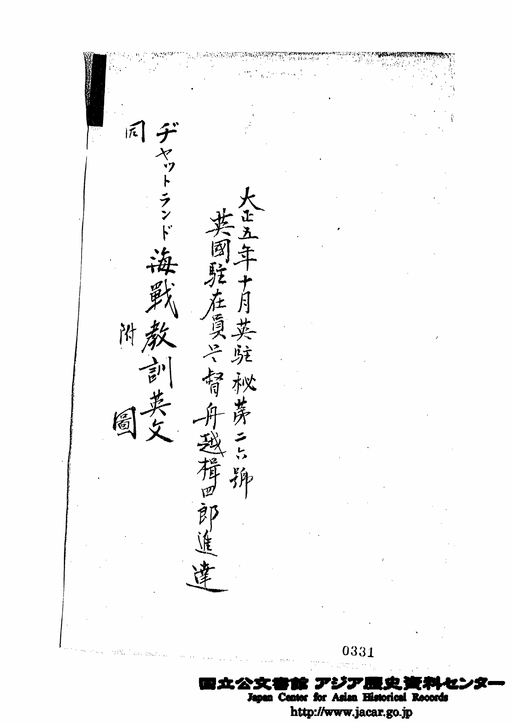 大正五年十月英駐祕第二六號
英國駐在員監督舟越楫四郎進達
ヂャットランド海戰教訓英文
同 附圖
0331
国立公文書館 アジア歴史資料センター
Japan Center for Asian Historical Records
http://www.jacar.go.jp